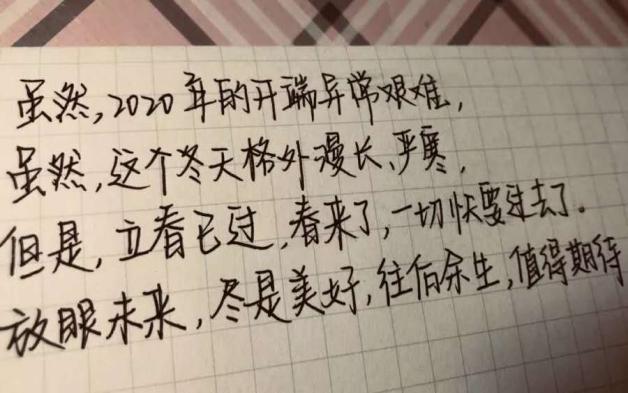 虽然,2020年的开端异常艰难,
虽然,这个冬天格外漫长、严寒,
但是,立春已过,春来了,一切快要过去了。
放眼未来,尽是美好,往后余生,值得期待